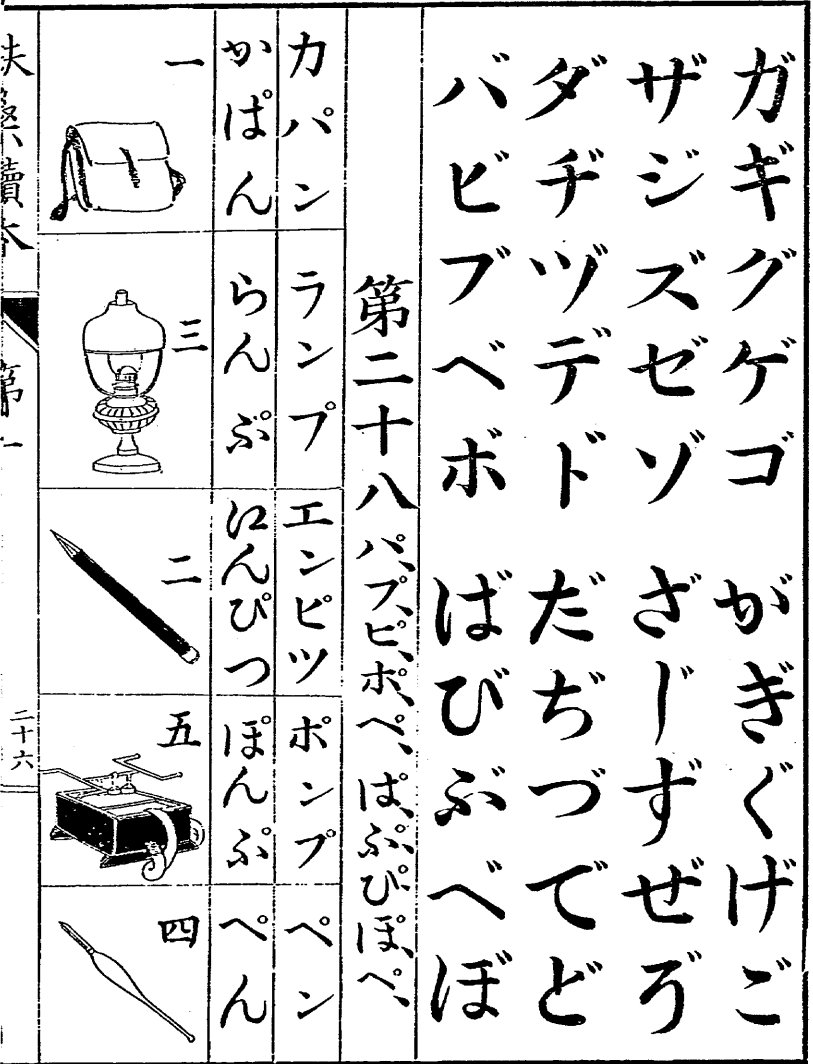 ガギグゲゴ がぎぐげご
ザジズゼゾ ざじずぜぞ
ダヂヅデド だぢづでど
バビブベボ ばびぶべぼ
第二十八 パ、プ、ピ、ポ、ペ、ぱ、ぷ、ぴ、ぽ、ぺ、
カパン ランプ エンピツ ポンプ ペン
かぱん らんぷ 𛀁んぴつ ぽんぷ ぺん
一 三 二 五 四
讀本
二十六